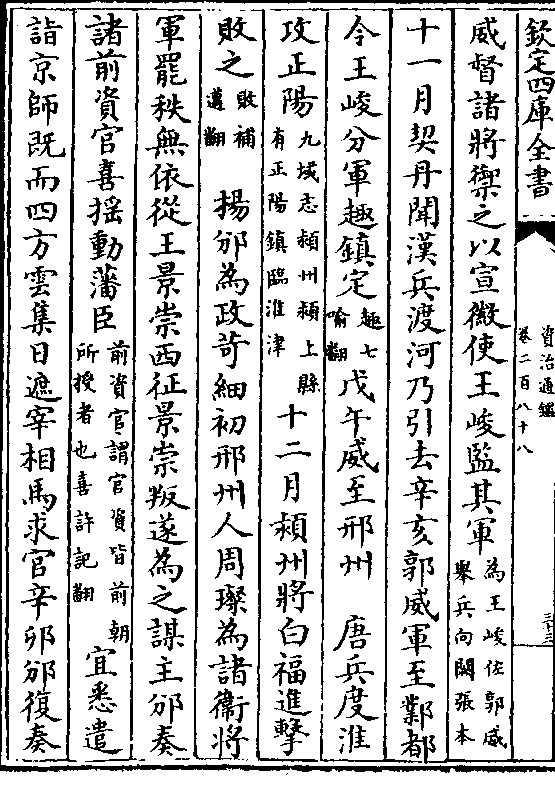 欽定四庫全書
資治通鑑
卷二百八十八
三十三
威督諸將禦之以宣徽使王峻監其軍為王峻佐郭威舉兵向闕張本
十一月契丹聞漢兵渡河乃引去辛亥郭威軍至鄴都
令王峻分軍趣鎮定趣七喻翻戊午威至邢州　唐兵度淮
攻正陽九域志潁州潁上縣有正陽鎮臨淮津十二月潁州將白福進擊
敗之敗補邁翻　楊邠為政苛細初邢州人周璨為諸衞將
軍罷秩無依從王景崇西征景崇叛遂為之謀主邠奏
諸前資官喜揺動藩臣前資官謂官資皆前朝所授者也喜許記翻宜悉遣
詣京師既而四方雲集日遮宰相馬求官辛卯邠復奏